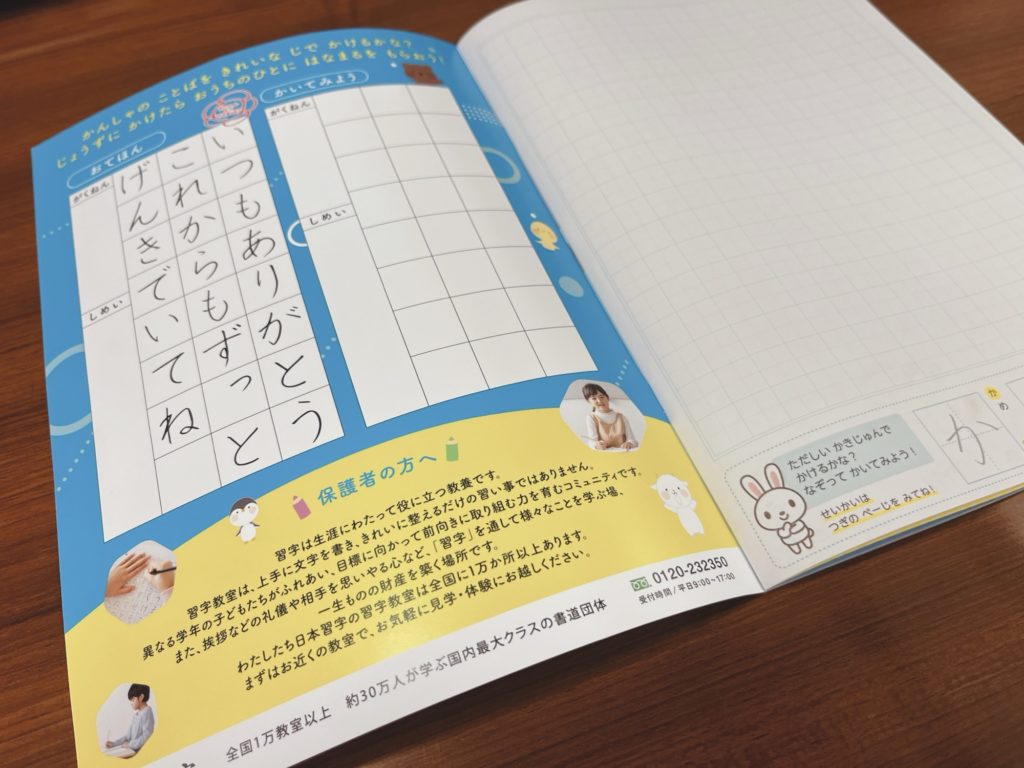 かんしゃの ことばを きれいな じで かけるかな?
じょうずに かけたら おうちのひとに はなまるを もらおう!
おてほん
いつもありがとう
これからもずっと
げんきでいてね
がくねん
しめい
かいてみよう
がくねん
しめい
保護者の方へ
習字は生涯にわたって役に立つ教養です。
習字教室は、上手に文字を書き、きれいに整えるだけの習い事ではありません。
異なる学年の子どもたちがふれあい、目標に向かって前向きに取り組む力を育むコミュニティです。
また、挨拶などの礼儀や相手を思いやる心など、「習字」を通して様々なことを学ぶ場、
一生ものの財産を築く場所です。
わたしたち日本習字の習字教室は全国に1万か所以上あります。
まずはお近くの教室で、お気軽に見学・体験にお越しください。
0120-232350
受付時間/平日9:00~17:00
全国1万教室以上 約30万人が学ぶ国内最大クラスの書道団体
ただしい かきじゅんで
かけるかな?
なぞって かいてみよう!
せいかいは
つぎの ページを みてね!
か
かめ